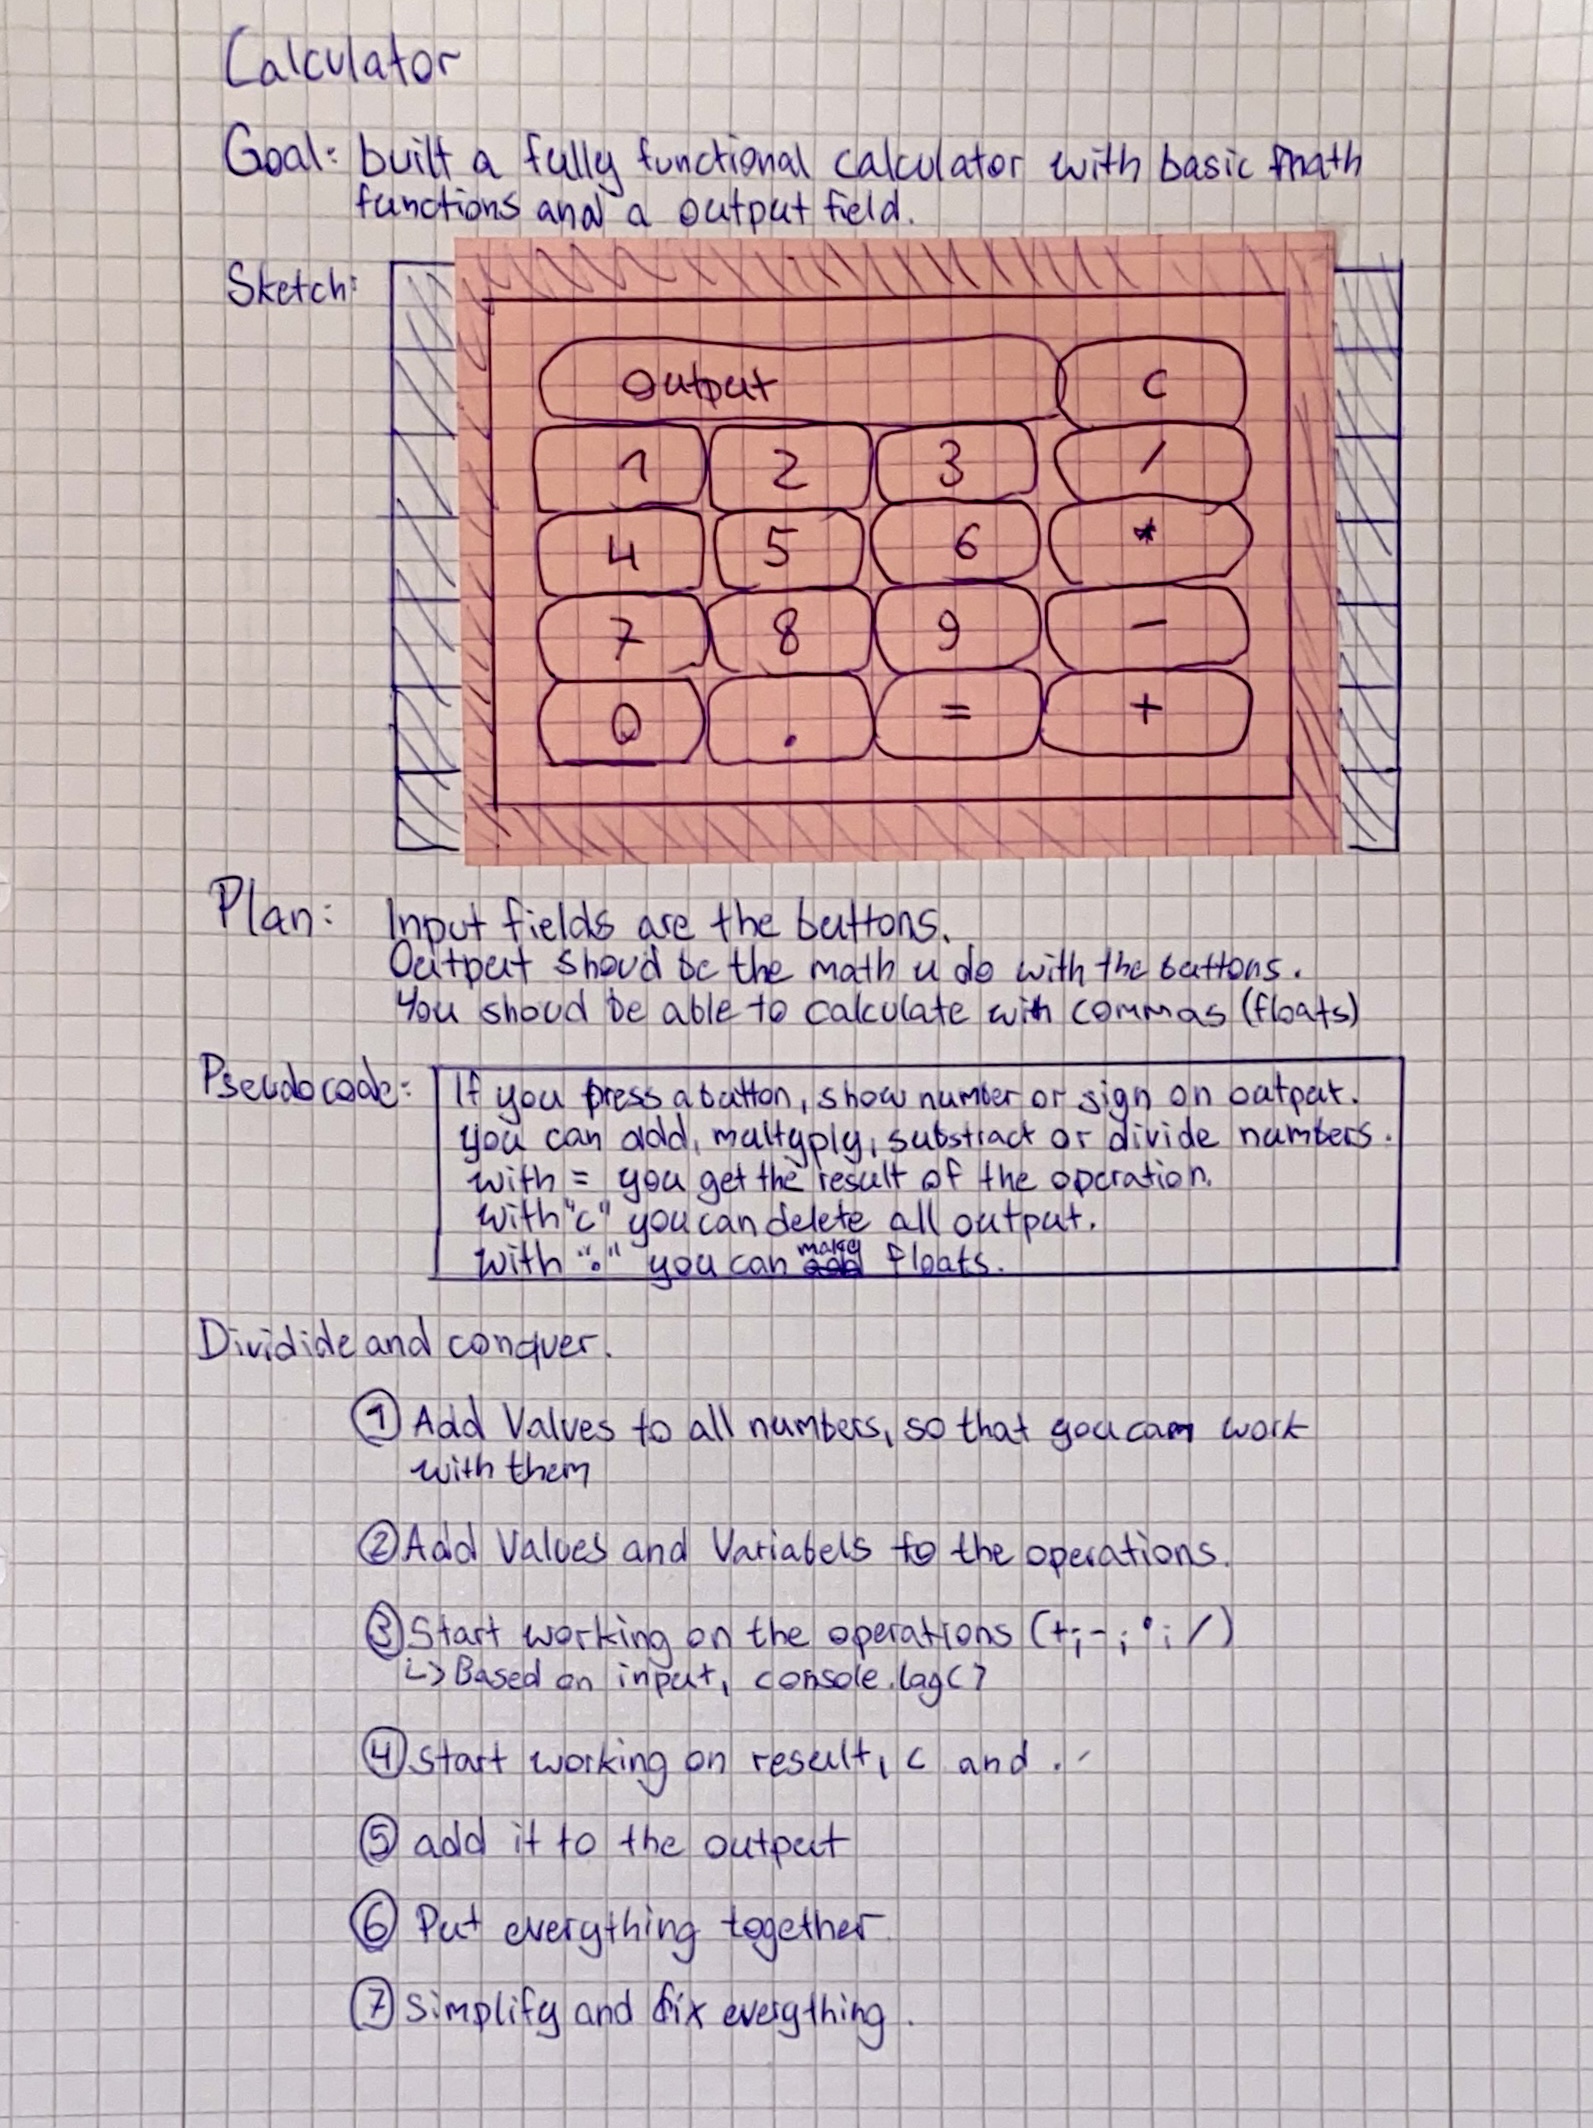 Calculator
Goal: built a fully functional calculator with basic math
functions and a output field.
Sketch:
Output C
1 2 3 /
4 5 6 *
7 8 9 -
0 . = +
Plan: Input fields are the buttons.
Output shoud be the math u do with the buttons.
You shoud be able to calculate with commas (floats)
Pseudocode: If you press a button, show number or sign on output.
you can add, multyply, substract or divide numbers.
with = you get the result of the operation.
with "c" you can delete all output.
with "." you can make floats.
Dividide and conquer.
① Add Values to all numbers, so that you can work
with them
② Add Values and Variabels to the operations.
③ Start working on the operations (+;-;•;/)
↳ Based on input, console.log()
④ start working on result, c and .
⑤ add it to the output
⑥ Put everything together
⑦ simplify and fix everything.